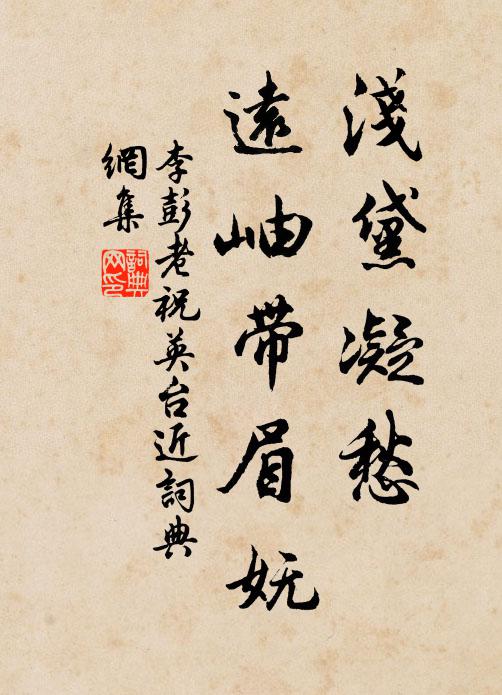 淺黛凝愁
遠岫帶眉妩
李彭老祝英台近詞典
網集
詞典
网印